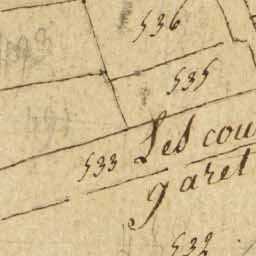 536
535
533 Les cou
garet
532